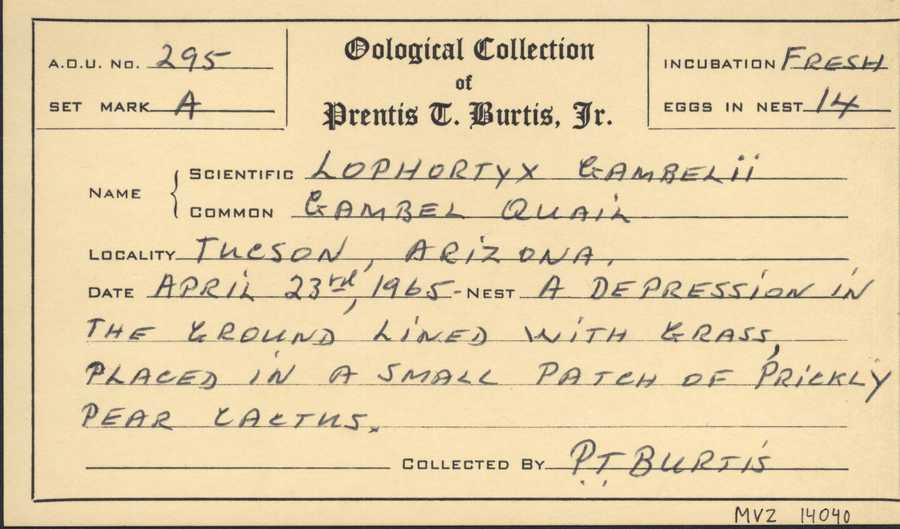 A.O.U. No. 295
SET MARK A
Oological Collection
of
Prentis T. Burtis, Jr.
INCUBATION FRESH
EGGS IN NEST 14
NAME
SCIENTIFIC LOPHORTYX GAMBELII
COMMON GAMBEL QUAIL
LOCALITY TUCSON, ARIZONA.
DATE APRIL 23rd, 1965 - NEST A DEPRESSION IN
THE GROUND LINED WITH GRASS,
PLACED IN A SMALL PATCH OF PRICKLY
PEAR CACTUS.
COLLECTED BY P.T. BURTIS
MVZ 14040